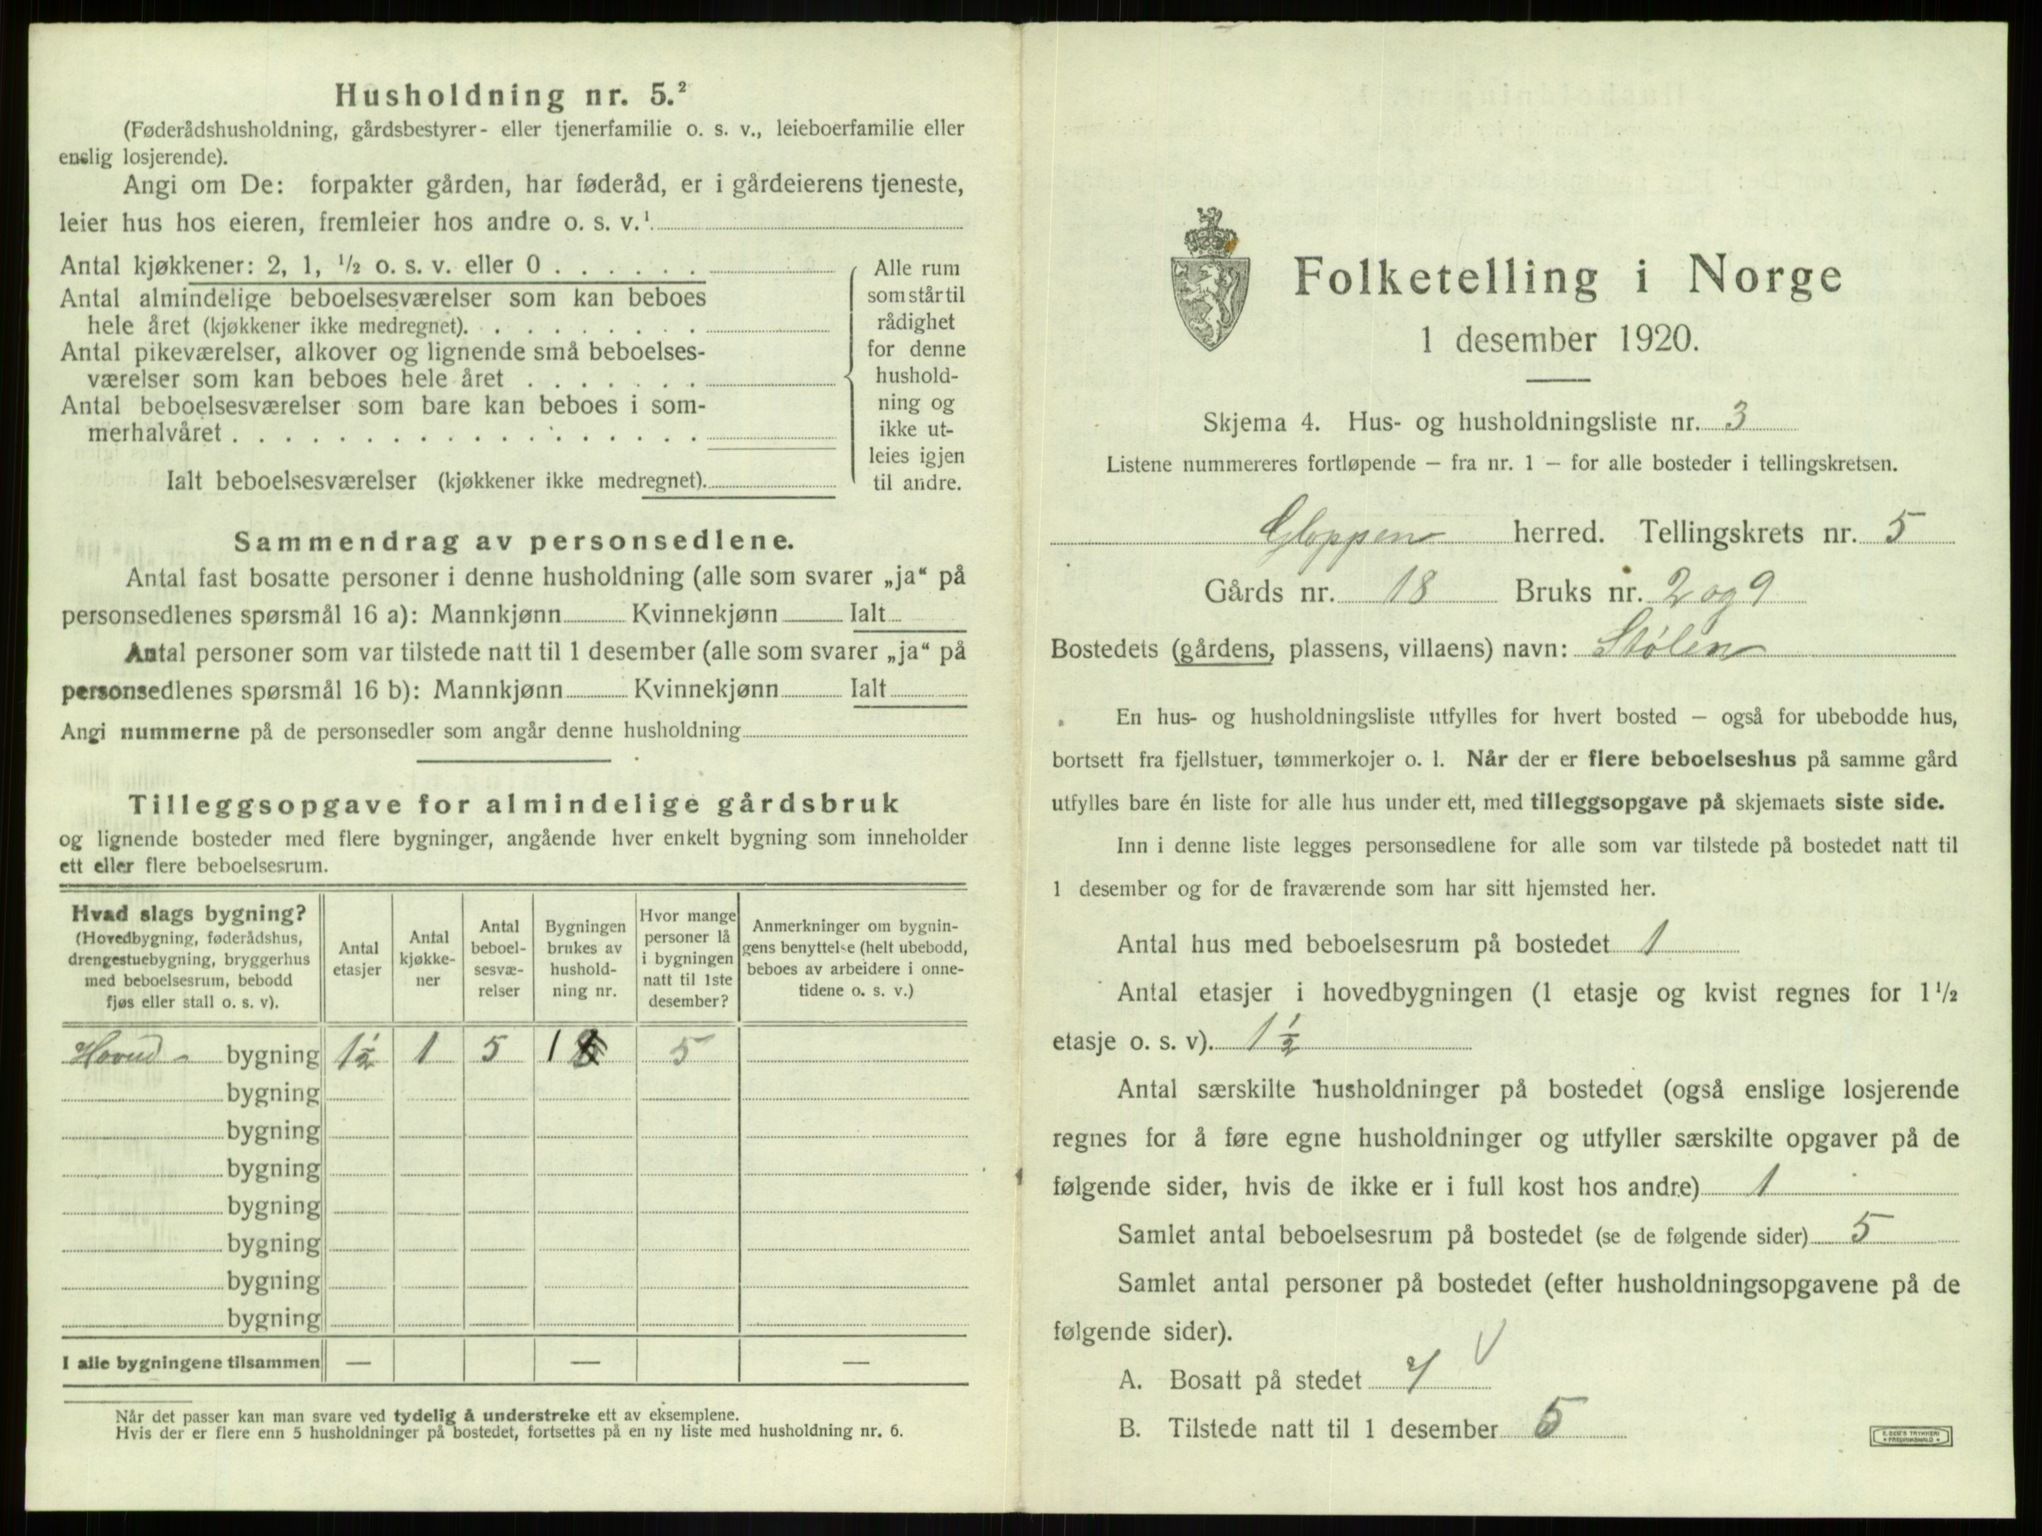 Husholdning nr. 5.²
(Føderådshusholdning, gårdsbestyrer- eller tjenerfamilie o. s. v., leieboerfamilie eller
enslig losjerende).
Angi om De: forpakter gården, har føderåd, er i gårdeierens tjeneste,
leier hus hos eieren, fremleier hos andre o. s. v.¹
Antal kjøkkener: 2, 1, ½ o. s. v. eller 0
Antal almindelige beboelsesværelser som kan beboes
hele året (kjøkkener ikke medregnet).
Antal pikeværelser, alkover og lignende små beboelses-
værelser som kan beboes hele året
Antal beboelsesværelser som bare kan beboes i som-
merhalvåret
Ialt beboelsesværelser (kjøkkener ikke medregnet).
Alle rum
som står til
rådighet
for denne
hushold-
ning og
ikke ut-
leies igjen
til andre.
Sammendrag av personsedlene.
Antal fast bosatte personer i denne husholdning (alle som svarer „ja" på
personsedlenes spørsmål 16 a): Mannkjønn Kvinnekjønn Ialt
Antal personer som var tilstede natt til 1 desember (alle som svarer „ja" på
personsedlenes spørsmål 16 b): Mannkjønn Kvinnekjønn Ialt
Angi nummerne på de personsedler som angår denne husholdning
Tilleggsopgave for almindelige gårdsbruk
og lignende bosteder med flere bygninger, angående hver enkelt bygning som inneholder
ett eller flere beboelsesrum.
Hvad slags bygning?
(Hovedbygning, føderådshus,
drengestuebygning, bryggerhus
med beboelsesrum, bebodd
fjøs eller stall o. s. v).
Antal
etasjer
Antal
kjøkke-
ner
Antal
beboel-
sesvæ-
relser
Bygningen
brukes av
hushold-
ning nr.
Hvor mange
personer lå
i bygningen
natt til 1ste
desember?
Anmerkninger om bygnin-
gens benyttelse (helt ubebodd,
beboes av arbeidere i onne-
tidene o. s. v.)
Hovud- bygning 1½ 1 5 1 5
bygning
bygning
bygning
bygning
bygning
bygning
bygning
I alle bygningene tilsammen — — —
Når det passer kan man svare ved tydelig å understreke ett av eksemplene.
Hvis der er flere enn 5 husholdninger på bostedet, fortsettes på en ny liste med husholdning nr. 6.
Folketelling i Norge
1 desember 1920.
Skjema 4. Hus- og husholdningsliste nr. 3
Listene nummereres fortløpende — fra nr. 1 — for alle bosteder i tellingskretsen.
Gloppen herred. Tellingskrets nr. 5
Gårds nr. 18 Bruks nr. 2 og 9
Bostedets (gårdens, plassens, villaens) navn: Stølen
En hus- og husholdningsliste utfylles for hvert bosted — også for ubebodde hus,
bortsett fra fjellstuer, tømmerkojer o. l. Når der er flere beboelseshus på samme gård
utfylles bare én liste for alle hus under ett, med tilleggsopgave på skjemaets siste side.
Inn i denne liste legges personsedlene for alle som var tilstede på bostedet natt til
1 desember og for de fraværende som har sitt hjemsted her.
Antal hus med beboelsesrum på bostedet 1
Antal etasjer i hovedbygningen (1 etasje og kvist regnes for 1½
etasje o. s. v). 1½
Antal særskilte husholdninger på bostedet (også enslige losjerende
regnes for å føre egne husholdninger og utfyller særskilte opgaver på de
følgende sider, hvis de ikke er i full kost hos andre) 1
Samlet antal beboelsesrum på bostedet (se de følgende sider) 5
Samlet antal personer på bostedet (efter husholdningsopgavene på de
følgende sider).
A. Bosatt på stedet
B. Tilstede natt til 1 desember 5